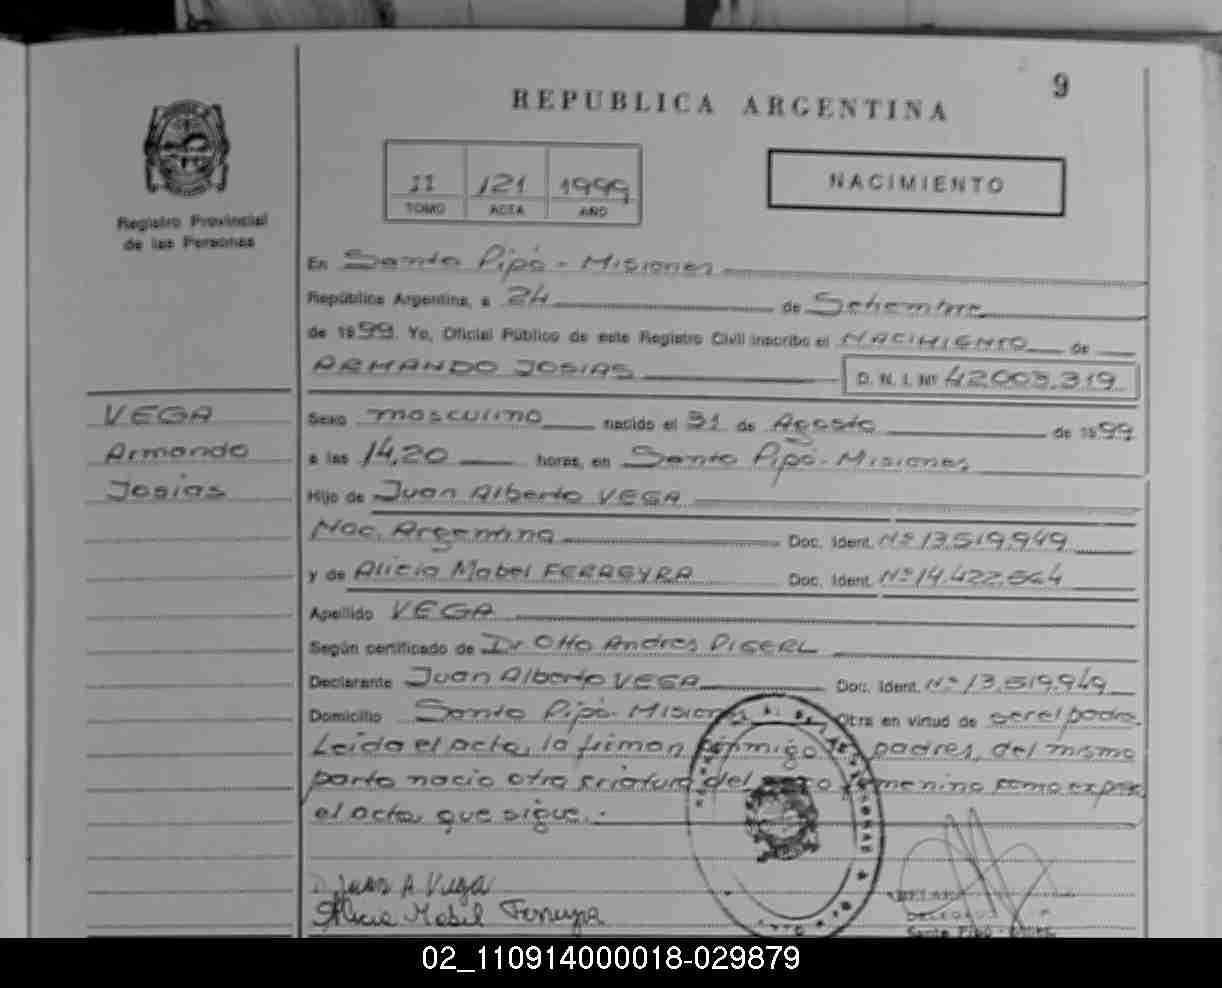 9
REPUBLICA ARGENTINA
Registro Provincial
de las Personas
II 121 1999
TOMO ACTA AÑO
NACIMIENTO
En Santo Pipó - Misiones
República Argentina, a 24 de Setiembre
de 1999. Yo, Oficial Público de este Registro Civil inscribo el NACIMIENTO de
ARMANDO JOSIAS D. N. I. Nº 42.003.319
VEGA
Armando
Josias
Sexo masculino nacido el 31 de Agosto de 1999
a las 14,20 horas, en Santo Pipó - Misiones
Hijo de Juan Alberto VEGA
Nac. Argentina Doc. Ident. Nº 13.519.949
y de Alicia Mabel FERREYRA Doc. Ident. Nº 14.422.564
Apellido VEGA
Según certificado de Dr Otto Andres DIGERL
Declarante Juan Alberto VEGA Doc. Ident. Nº 13.519.949
Domicilio Santo Pipó - Misiones Obra en virtud de ser el padre.
Leida el acta, la firman conmigo padres, del mismo
parto nacio otra criatura del sexo femenino como expresa
el acta que sigue.
Juan A Vega
Alicia Mabel Ferreyra
Santo Pipó
02_110914000018-029879